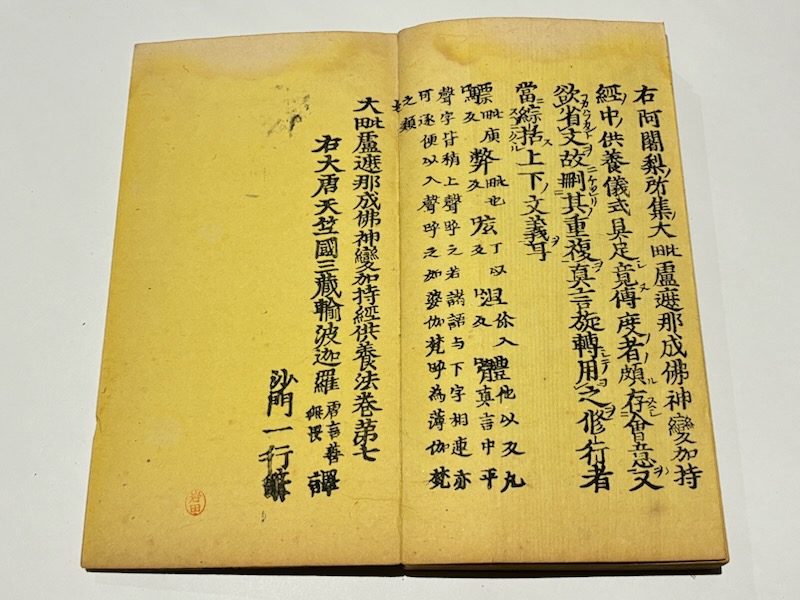 右阿闍梨所集大毗盧遮那成佛神變加持
經中供養儀式具足竟傳度者頗存會意又
欲省文故刪其重複真言旋轉用之修行者
當綜括上下文義耳
驃毗庾反弊毗也反呟丁以反體他以反凡真言中平
聲字皆稍上聲呼之若諸語与下字相連亦
可逐便以入聲呼之如婆伽梵呼為薄伽梵
之類
大毗盧遮那成佛神變加持經供養法卷第七
右大唐天竺國三藏輸波迦羅唐言善無畏譯
沙門一行
岩田